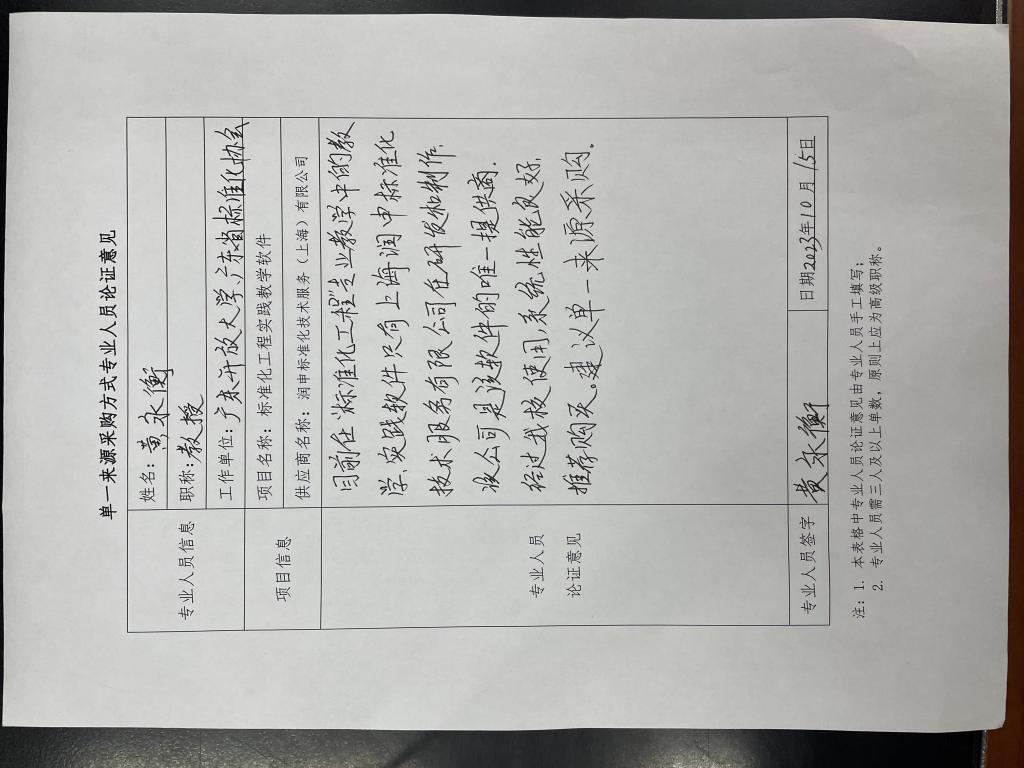 单一来源采购方式专业人员论证意见
专业人员信息
姓名：黄永衡
职称：教授
工作单位：广东开放大学、广东省标准化协会
项目信息
项目名称：标准化工程实践教学软件
供应商名称：润申标准化技术服务（上海）有限公司
专业人员
论证意见
目前在"标准化工程"专业教学中的教
学、实践软件只有上海润申标准化
技术服务有限公司在研发和制作，
该公司是该软件的唯一提供商.
经过我校使用,系统性能良好,
推荐购买。建议单一来源采购。
专业人员签字
黄永衡
日期2023年10月15日
注：1. 本表格中专业人员论证意见由专业人员手工填写；
2. 专业人员需三人及以上单数，原则上应为高级职称。